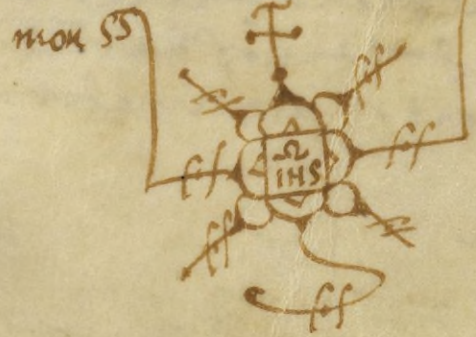 mon SS
ff ff
ff ff
Ω
IHS
ff
ff